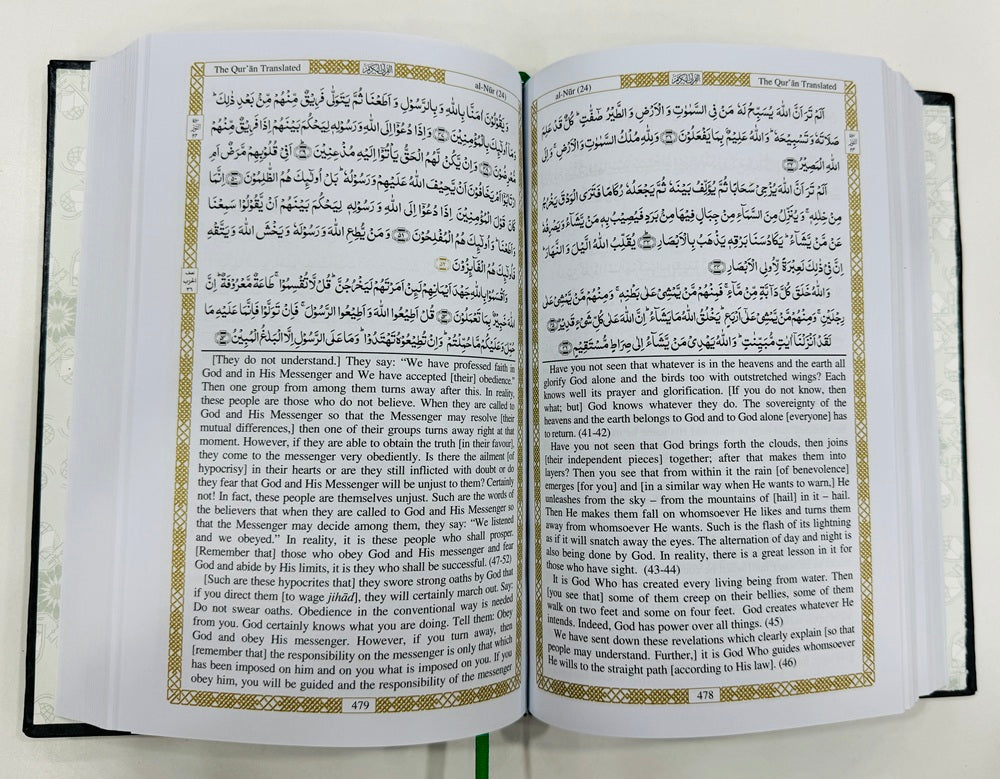 al-Nūr (24) The Qur’ān Translated
اَلَمْ تَرَ اَنَّ اللّٰهَ يُسَبِّحُ لَهٗ مَنْ فِى السَّمٰوٰتِ وَ الْاَرْضِ وَ الطَّيْرُ صٰٓفّٰتٍ ؕ كُلٌّ قَدْ عَلِمَ
صَلَاتَهٗ وَ تَسْبِيْحَهٗ ؕ وَ اللّٰهُ عَلِيْمٌۢ بِمَا يَفْعَلُوْنَ ﴿۴۱﴾ وَ لِلّٰهِ مُلْكُ السَّمٰوٰتِ وَ الْاَرْضِ ۚ وَ اِلَى
اللّٰهِ الْمَصِيْرُ ﴿۴۲﴾
اَلَمْ تَرَ اَنَّ اللّٰهَ يُزْجِىْ سَحَابًا ثُمَّ يُؤَلِّفُ بَيْنَهٗ ثُمَّ يَجْعَلُهٗ رُكَامًا فَتَرَى الْوَدْقَ يَخْرُجُ
مِنْ خِلٰلِهٖ ۚ وَ يُنَزِّلُ مِنَ السَّمَآءِ مِنْ جِبَالٍ فِيْهَا مِنْۢ بَرَدٍ فَيُصِيْبُ بِهٖ مَنْ يَّشَآءُ وَ يَصْرِفُهٗ
عَنْ مَّنْ يَّشَآءُ ؕ يَكَادُ سَنَا بَرْقِهٖ يَذْهَبُ بِالْاَبْصَارِ ﴿۴۳﴾ يُقَلِّبُ اللّٰهُ الَّيْلَ وَ النَّهَارَ ؕ
اِنَّ فِىْ ذٰلِكَ لَعِبْرَةً لِّاُولِى الْاَبْصَارِ ﴿۴۴﴾
وَ اللّٰهُ خَلَقَ كُلَّ دَآبَّةٍ مِّنْ مَّآءٍ ۚ فَمِنْهُمْ مَّنْ يَّمْشِىْ عَلٰى بَطْنِهٖ ۚ وَ مِنْهُمْ مَّنْ يَّمْشِىْ عَلٰى
رِجْلَيْنِ ۚ وَ مِنْهُمْ مَّنْ يَّمْشِىْ عَلٰٓى اَرْبَعٍ ؕ يَخْلُقُ اللّٰهُ مَا يَشَآءُ ؕ اِنَّ اللّٰهَ عَلٰى كُلِّ شَىْءٍ قَدِيْرٌ ﴿۴۵﴾
لَقَدْ اَنْزَلْنَآ اٰيٰتٍ مُّبَيِّنٰتٍ ؕ وَ اللّٰهُ يَهْدِىْ مَنْ يَّشَآءُ اِلٰى صِرَاطٍ مُّسْتَقِيْمٍ ﴿۴۶﴾
Have you not seen that whatever is in the heavens and the earth all
glorify God alone and the birds too with outstretched wings? Each
knows well its prayer and glorification. [If you do not know, then
what; but] God knows whatever they do. The sovereignty of the
heavens and the earth belongs to God and to God alone [everyone] has
to return. (41-42)
Have you not seen that God brings forth the clouds, then joins
[their independent pieces] together; after that makes them into
layers? Then you see that from within it the rain [of benevolence]
emerges [for you] and [in a similar way when He wants to warn,] He
unleashes from the sky – from the mountains of [hail] in it – hail.
Then He makes them fall on whomsoever He likes and turns them
away from whomsoever He wants. Such is the flash of its lightning
as if it will snatch away the eyes. The alternation of day and night is
also being done by God. In reality, there is a great lesson in it for
those who have sight. (43-44)
It is God Who has created every living being from water. Then
[you see that] some of them creep on their bellies, some of them
walk on two feet and some on four feet. God creates whatever He
intends. Indeed, God has power over all things. (45)
We have sent down these revelations which clearly explain [so that
people may understand. Further,] it is God Who guides whomsoever
He wills to the straight path [according to His law]. (46)
478
The Qur’ān Translated al-Nūr (24)
وَ يَقُوْلُوْنَ اٰمَنَّا بِاللّٰهِ وَ بِالرَّسُوْلِ وَ اَطَعْنَا ثُمَّ يَتَوَلّٰى فَرِيْقٌ مِّنْهُمْ مِّنْۢ بَعْدِ ذٰلِكَ ؕ
وَ مَآ اُولٰٓئِكَ بِالْمُؤْمِنِيْنَ ﴿۴۷﴾ وَ اِذَا دُعُوْٓا اِلَى اللّٰهِ وَ رَسُوْلِهٖ لِيَحْكُمَ بَيْنَهُمْ اِذَا فَرِيْقٌ مِّنْهُمْ
مُّعْرِضُوْنَ ﴿۴۸﴾ وَ اِنْ يَّكُنْ لَّهُمُ الْحَقُّ يَاْتُوْٓا اِلَيْهِ مُذْعِنِيْنَ ﴿۴۹﴾ اَفِىْ قُلُوْبِهِمْ مَّرَضٌ اَمِ
ارْتَابُوْٓا اَمْ يَخَافُوْنَ اَنْ يَّحِيْفَ اللّٰهُ عَلَيْهِمْ وَ رَسُوْلُهٗ ؕ بَلْ اُولٰٓئِكَ هُمُ الظّٰلِمُوْنَ ﴿۵۰﴾ اِنَّمَا
كَانَ قَوْلَ الْمُؤْمِنِيْنَ اِذَا دُعُوْٓا اِلَى اللّٰهِ وَ رَسُوْلِهٖ لِيَحْكُمَ بَيْنَهُمْ اَنْ يَّقُوْلُوْا سَمِعْنَا
وَ اَطَعْنَا ؕ وَ اُولٰٓئِكَ هُمُ الْمُفْلِحُوْنَ ﴿۵۱﴾ وَ مَنْ يُّطِعِ اللّٰهَ وَ رَسُوْلَهٗ وَ يَخْشَ اللّٰهَ وَ يَتَّقْهِ
فَاُولٰٓئِكَ هُمُ الْفَآئِزُوْنَ ﴿۵۲﴾
وَ اَقْسَمُوْا بِاللّٰهِ جَهْدَ اَيْمَانِهِمْ لَئِنْ اَمَرْتَهُمْ لَيَخْرُجُنَّ ؕ قُلْ لَّا تُقْسِمُوْا ۚ طَاعَةٌ مَّعْرُوْفَةٌ ؕ اِنَّ
اللّٰهَ خَبِيْرٌۢ بِمَا تَعْمَلُوْنَ ﴿۵۳﴾ قُلْ اَطِيْعُوا اللّٰهَ وَ اَطِيْعُوا الرَّسُوْلَ ۚ فَاِنْ تَوَلَّوْا فَاِنَّمَا عَلَيْهِ مَا
حُمِّلَ وَ عَلَيْكُمْ مَّا حُمِّلْتُمْ ؕ وَ اِنْ تُطِيْعُوْهُ تَهْتَدُوْا ؕ وَ مَا عَلَى الرَّسُوْلِ اِلَّا الْبَلٰغُ الْمُبِيْنُ ﴿۵۴﴾
[They do not understand.] They say: “We have professed faith in
God and in His Messenger and We have accepted [their] obedience.”
Then one group from among them turns away after this. In reality,
these people are those who do not believe. When they are called to
God and His Messenger so that the Messenger may resolve [their
mutual differences,] then one of their groups turns away right at that
moment. However, if they are able to obtain the truth [in their favour],
they come to the messenger very obediently. Is there the ailment [of
hypocrisy] in their hearts or are they still inflicted with doubt or do
they fear that God and His Messenger will be unjust to them? Certainly
not! In fact, these people are themselves unjust. Such are the words of
the believers that when they are called to God and His Messenger so
that the Messenger may decide among them, they say: “We listened
and we obeyed.” In reality, it is these people who shall prosper.
[Remember that] those who obey God and His messenger and fear
God and abide by His limits, it is they who shall be successful. (47-52)
[Such are these hypocrites that] they swore strong oaths by God that
if you direct them [to wage jihād], they will certainly march out. Say:
Do not swear oaths. Obedience in the conventional way is needed
from you. God certainly knows what you are doing. Tell them: Obey
God and obey His messenger. However, if you turn away, then
[remember that] the responsibility on the messenger is only that which
has been imposed on him and on you what is imposed on you. If you
obey him, you will be guided and the responsibility of the messenger
479